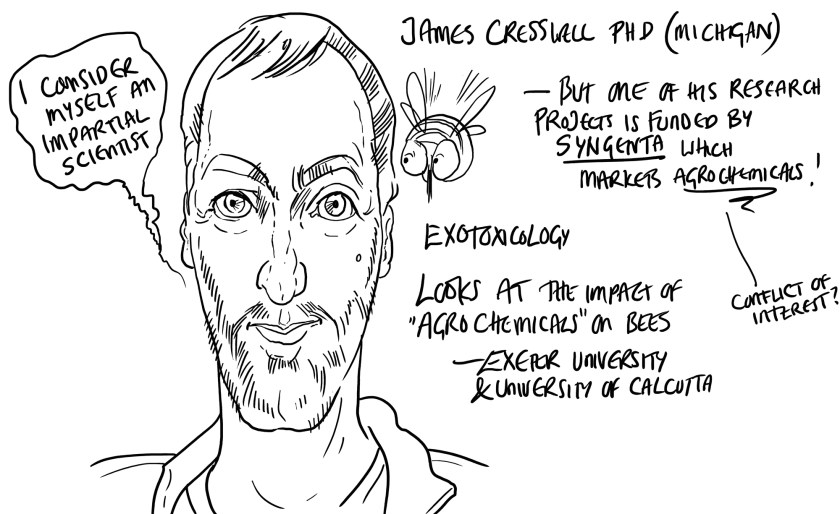 I CONSIDER
MYSELF AN
IMPARTIAL
SCIENTIST
JAMES CRESSWELL PHD (MICHIGAN)
— BUT ONE OF HIS RESEARCH
PROJECTS IS FUNDED BY
SYNGENTA WHICH
MARKETS AGROCHEMICALS!
CONFLICT OF
INTEREST?
EXOTOXICOLOGY
LOOKS AT THE IMPACT OF
"AGROCHEMICALS" ON BEES
— EXETOR UNIVERSITY
& UNIVERSITY OF CALCUTTA